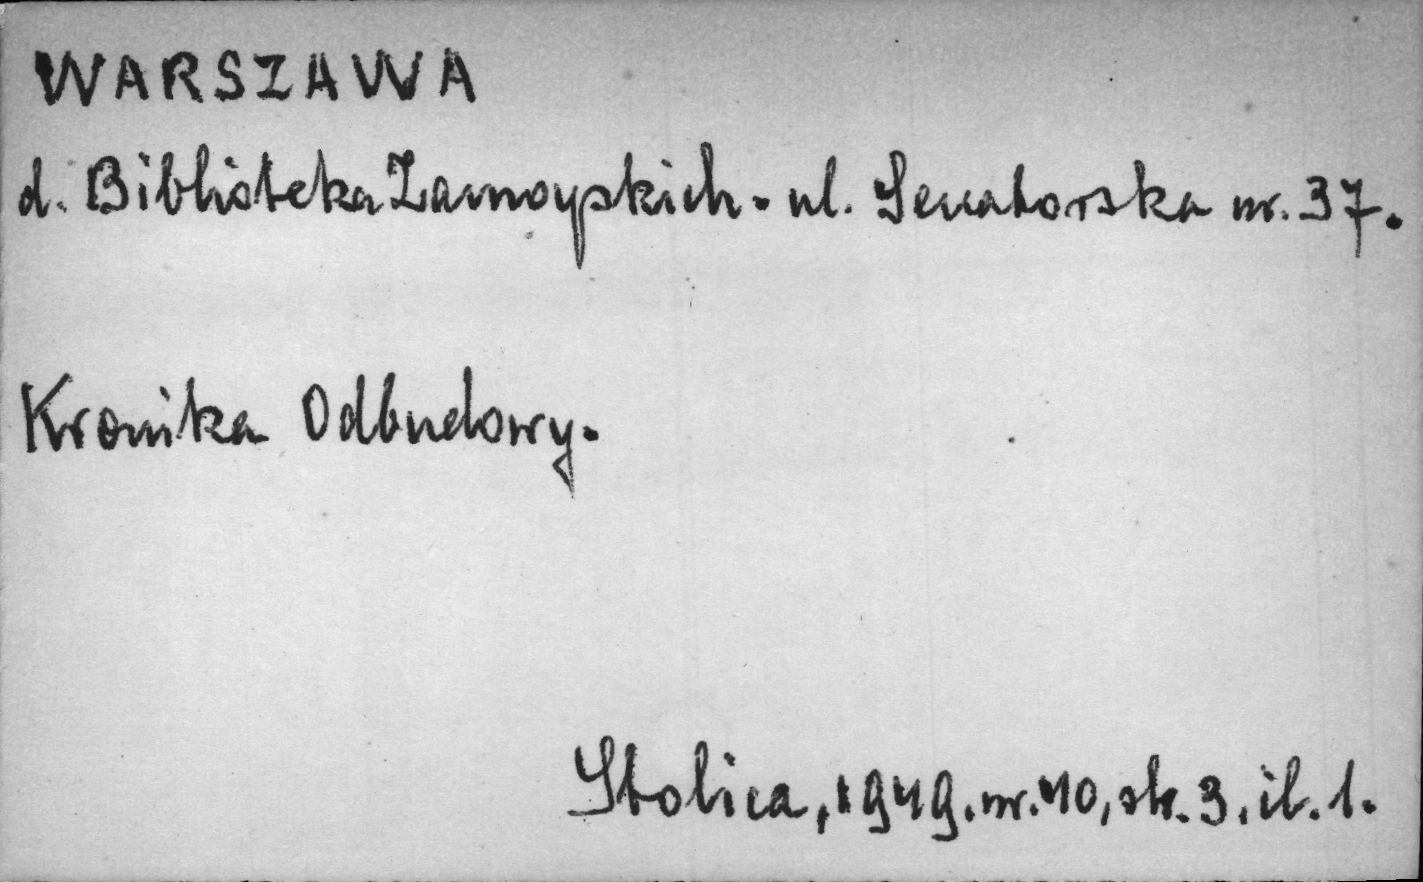 WARSZAWA
d. Biblioteka Zamoyskich - ul. Senatorska nr. 37.
Kronika Odbudowy.
Stolica, 1949. nr. 40, str. 3, il. 1.